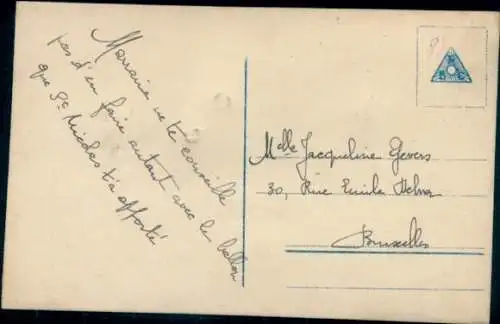 Marraine ne te conseille
pas d'en faire autant avec le ballon
que St Nicolas t'a apporté
Melle Jacqueline Gevers
30, Rue Emile
Bruxelles